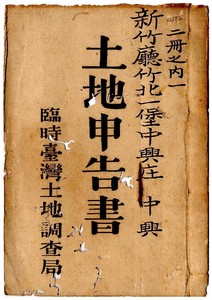 二冊之内一
新竹廳竹北一堡中興庄 中興
土地申告書
臨時臺灣土地調查局